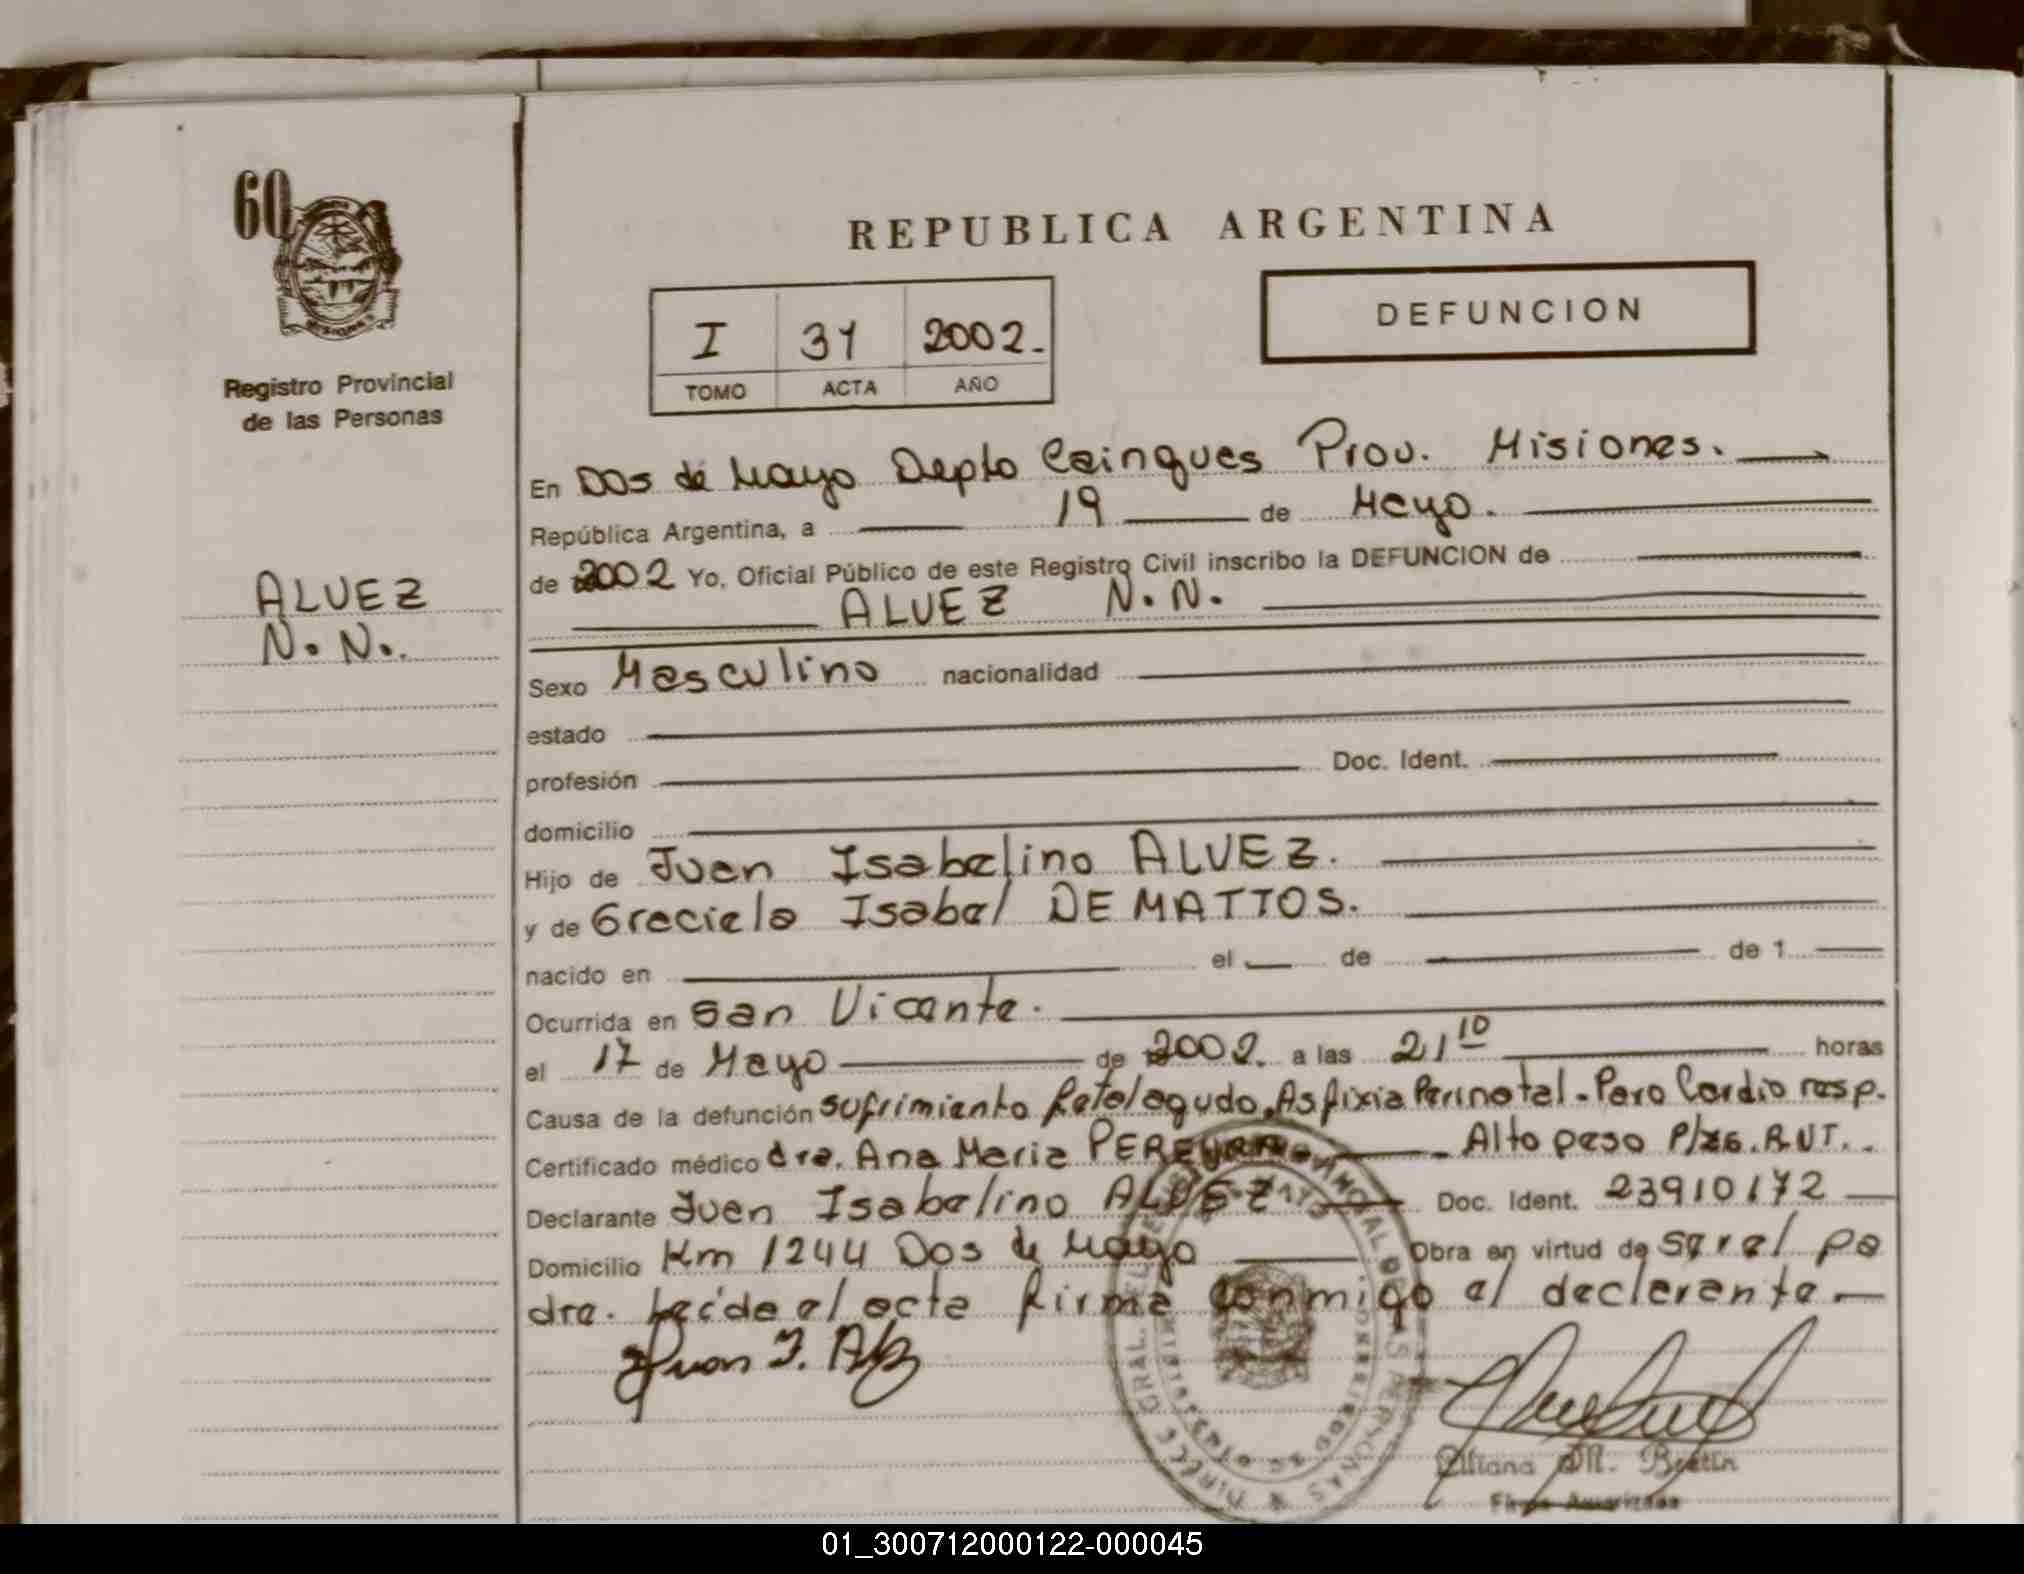 60
Registro Provincial
de las Personas
ALVEZ
N. N.
REPUBLICA ARGENTINA
I 31 2002.
TOMO ACTA AÑO
DEFUNCION
En Dos de Mayo Depto Cainguas Prov. Misiones.
República Argentina, a 19 de Mayo.
de 2002 Yo, Oficial Público de este Registro Civil inscribo la DEFUNCION de
ALVEZ N. N.
Sexo Masculino nacionalidad
estado
profesión Doc. Ident.
domicilio
Hijo de Juan Isabelino ALVEZ.
y de Graciela Isabel DE MATTOS.
nacido en el de de 1
Ocurrida en San Vicente.
el 17 de Mayo de 2002. a las 21 10 horas
Causa de la defunción sufrimiento fetal agudo, Asfixia Perinatal - Paro Cardio resp.
Certificado médico dra. Ana Maria PEREYRA. Alto peso P/ R.N.T.
Declarante Juan Isabelino ALVEZ Doc. Ident. 23910172
Domicilio Km 1244 Dos de Mayo Obra en virtud de ser el pa
dre. Leída el acta firma conmigo el declarante.
Juan I. Alz
Liliana M.
01_300712000122-000045